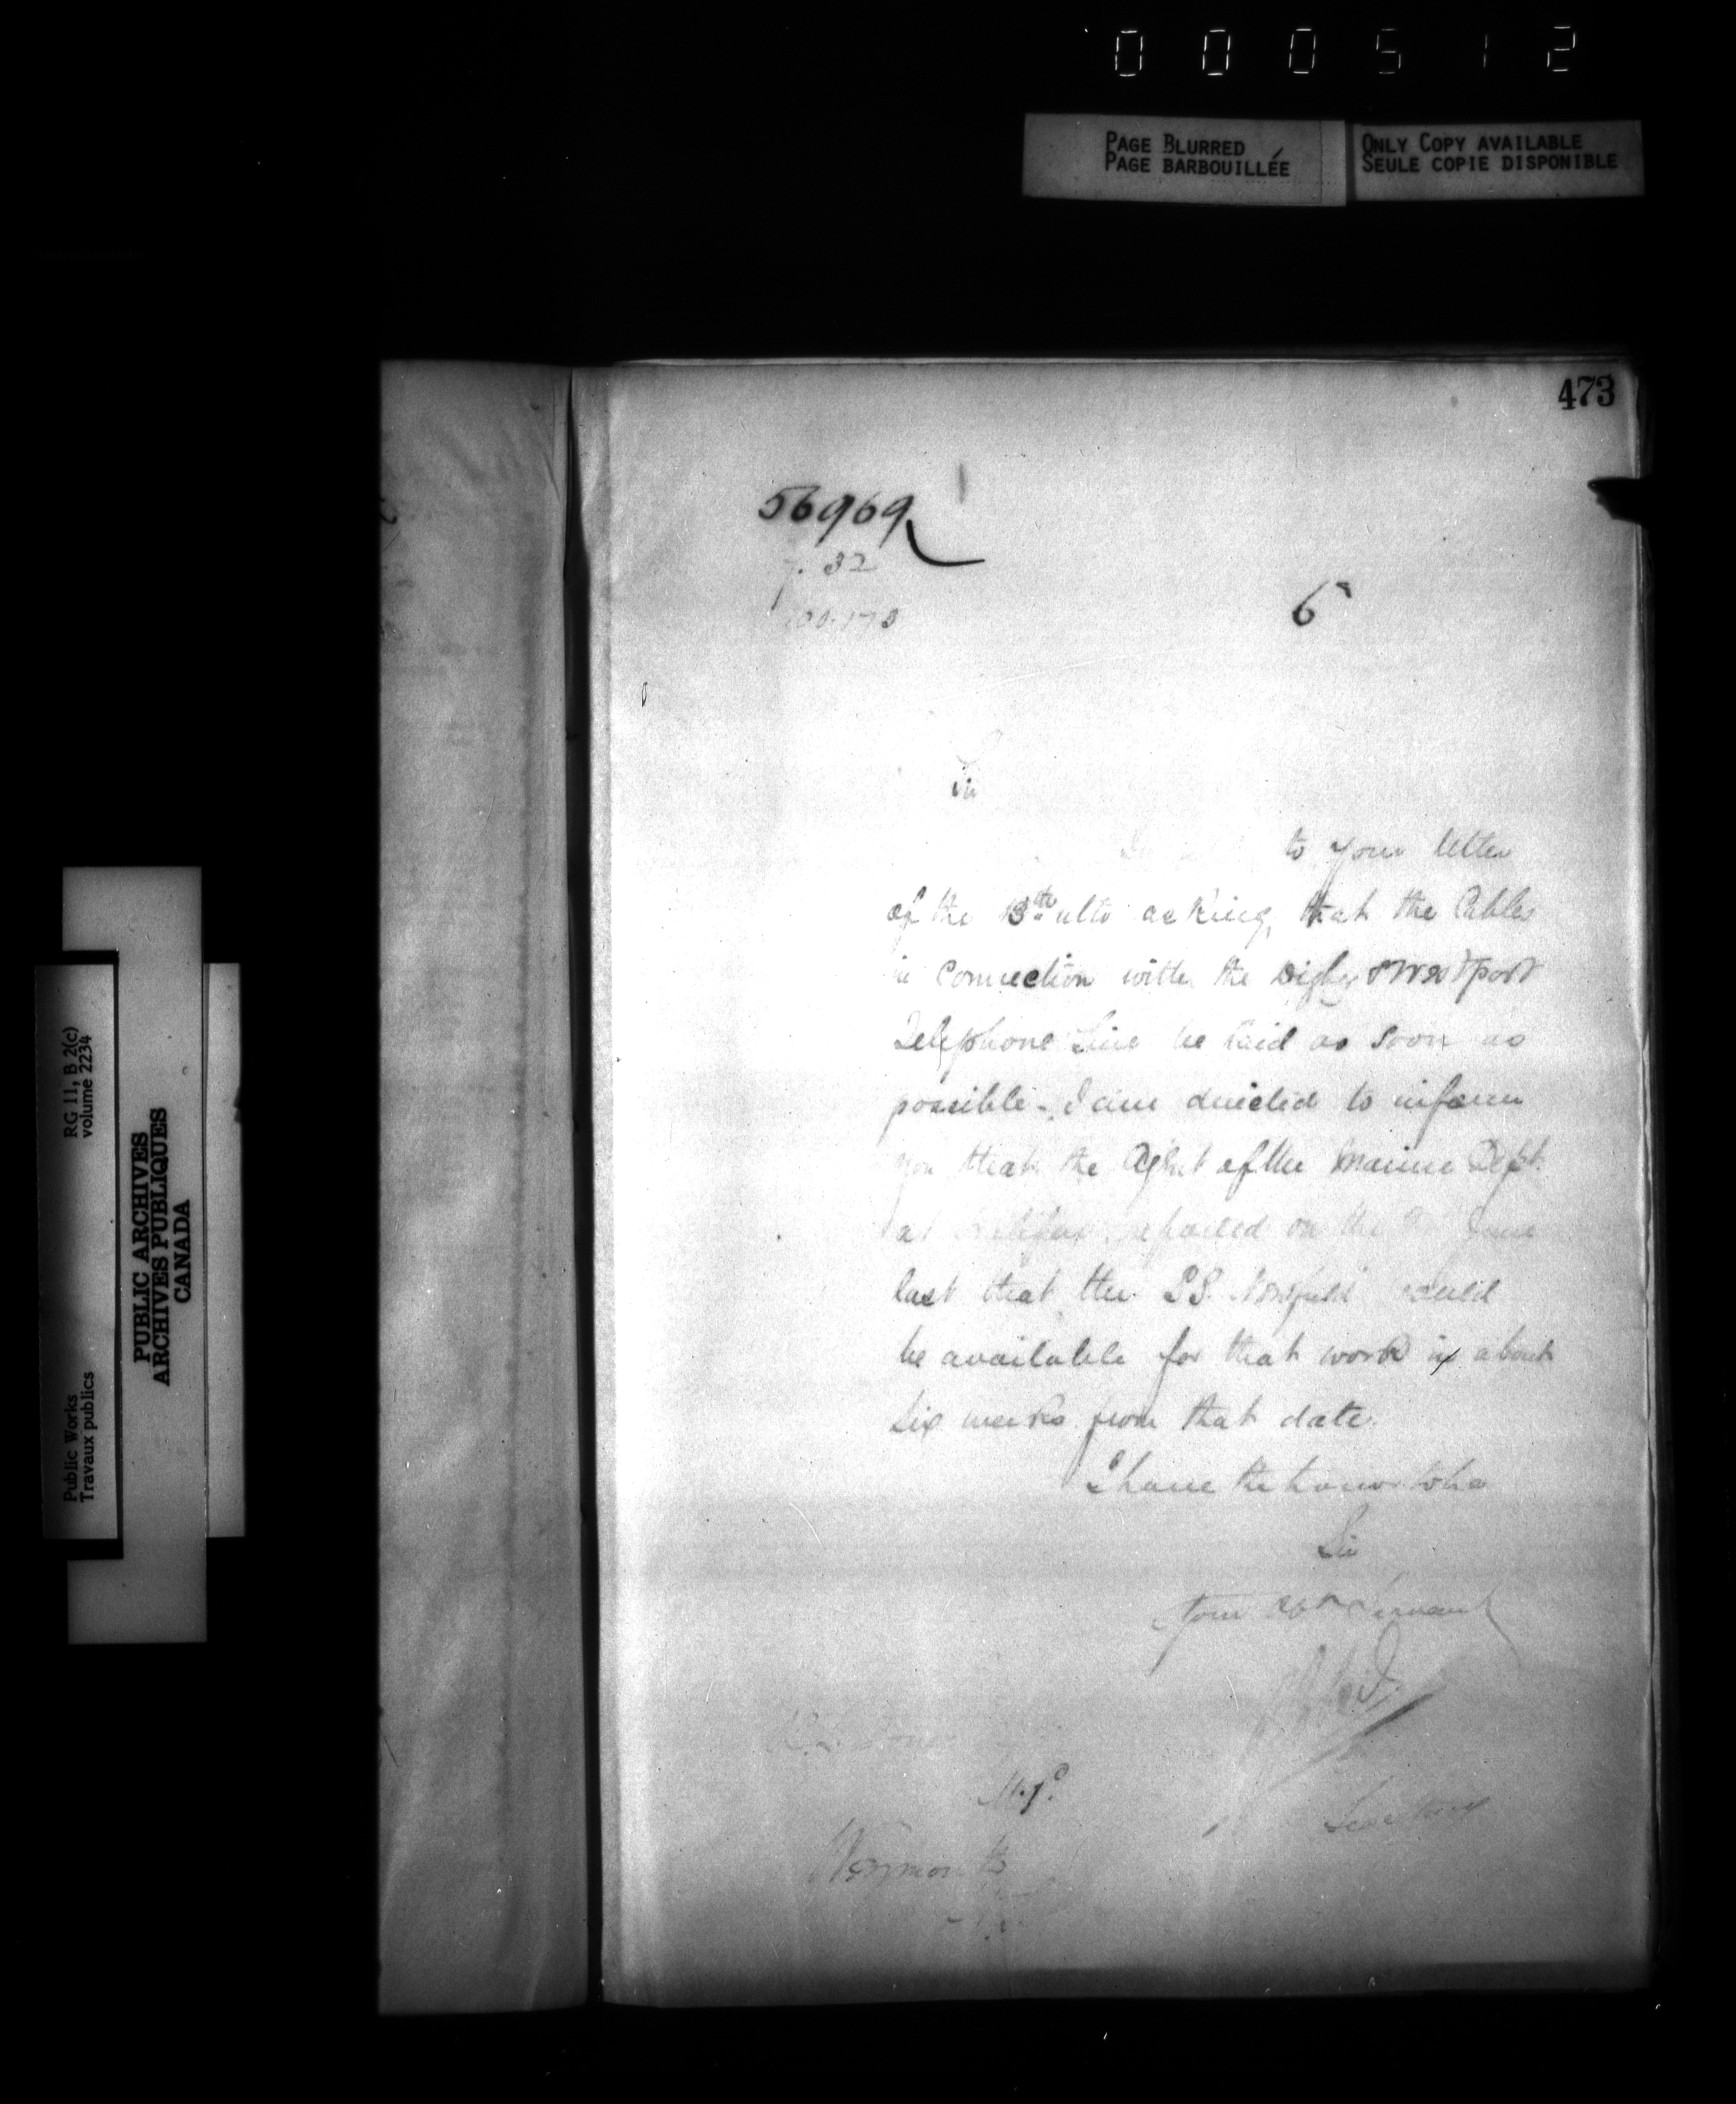 000512
PAGE BLURRED
PAGE BARBOUILLÉE
ONLY COPY AVAILABLE
SEULE COPIE DISPONIBLE
473
56969
p. 32
6
Sir
to your letter
of the 13th ulto asking, that the Cables
in connection with the Digby & Westport
Telephone Line be laid as soon as
possible - I am directed to inform
you that the Agent of the Marine Dept.
at Halifax reported on the
last that the SS. Newfield would
be available for that work in about
six weeks from that date.
I have the honor to be
Sir
Your Obt Servant
Secretary
M.P.
Weymouth
Public Works
Travaux publics
RG 11, B 2(c)
volume 2234
PUBLIC ARCHIVES
ARCHIVES PUBLIQUES
CANADA